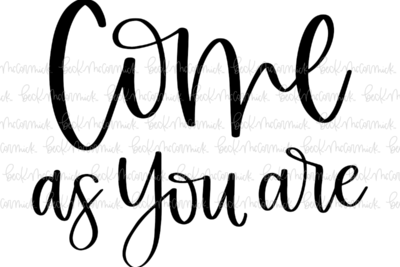 Come
as you are